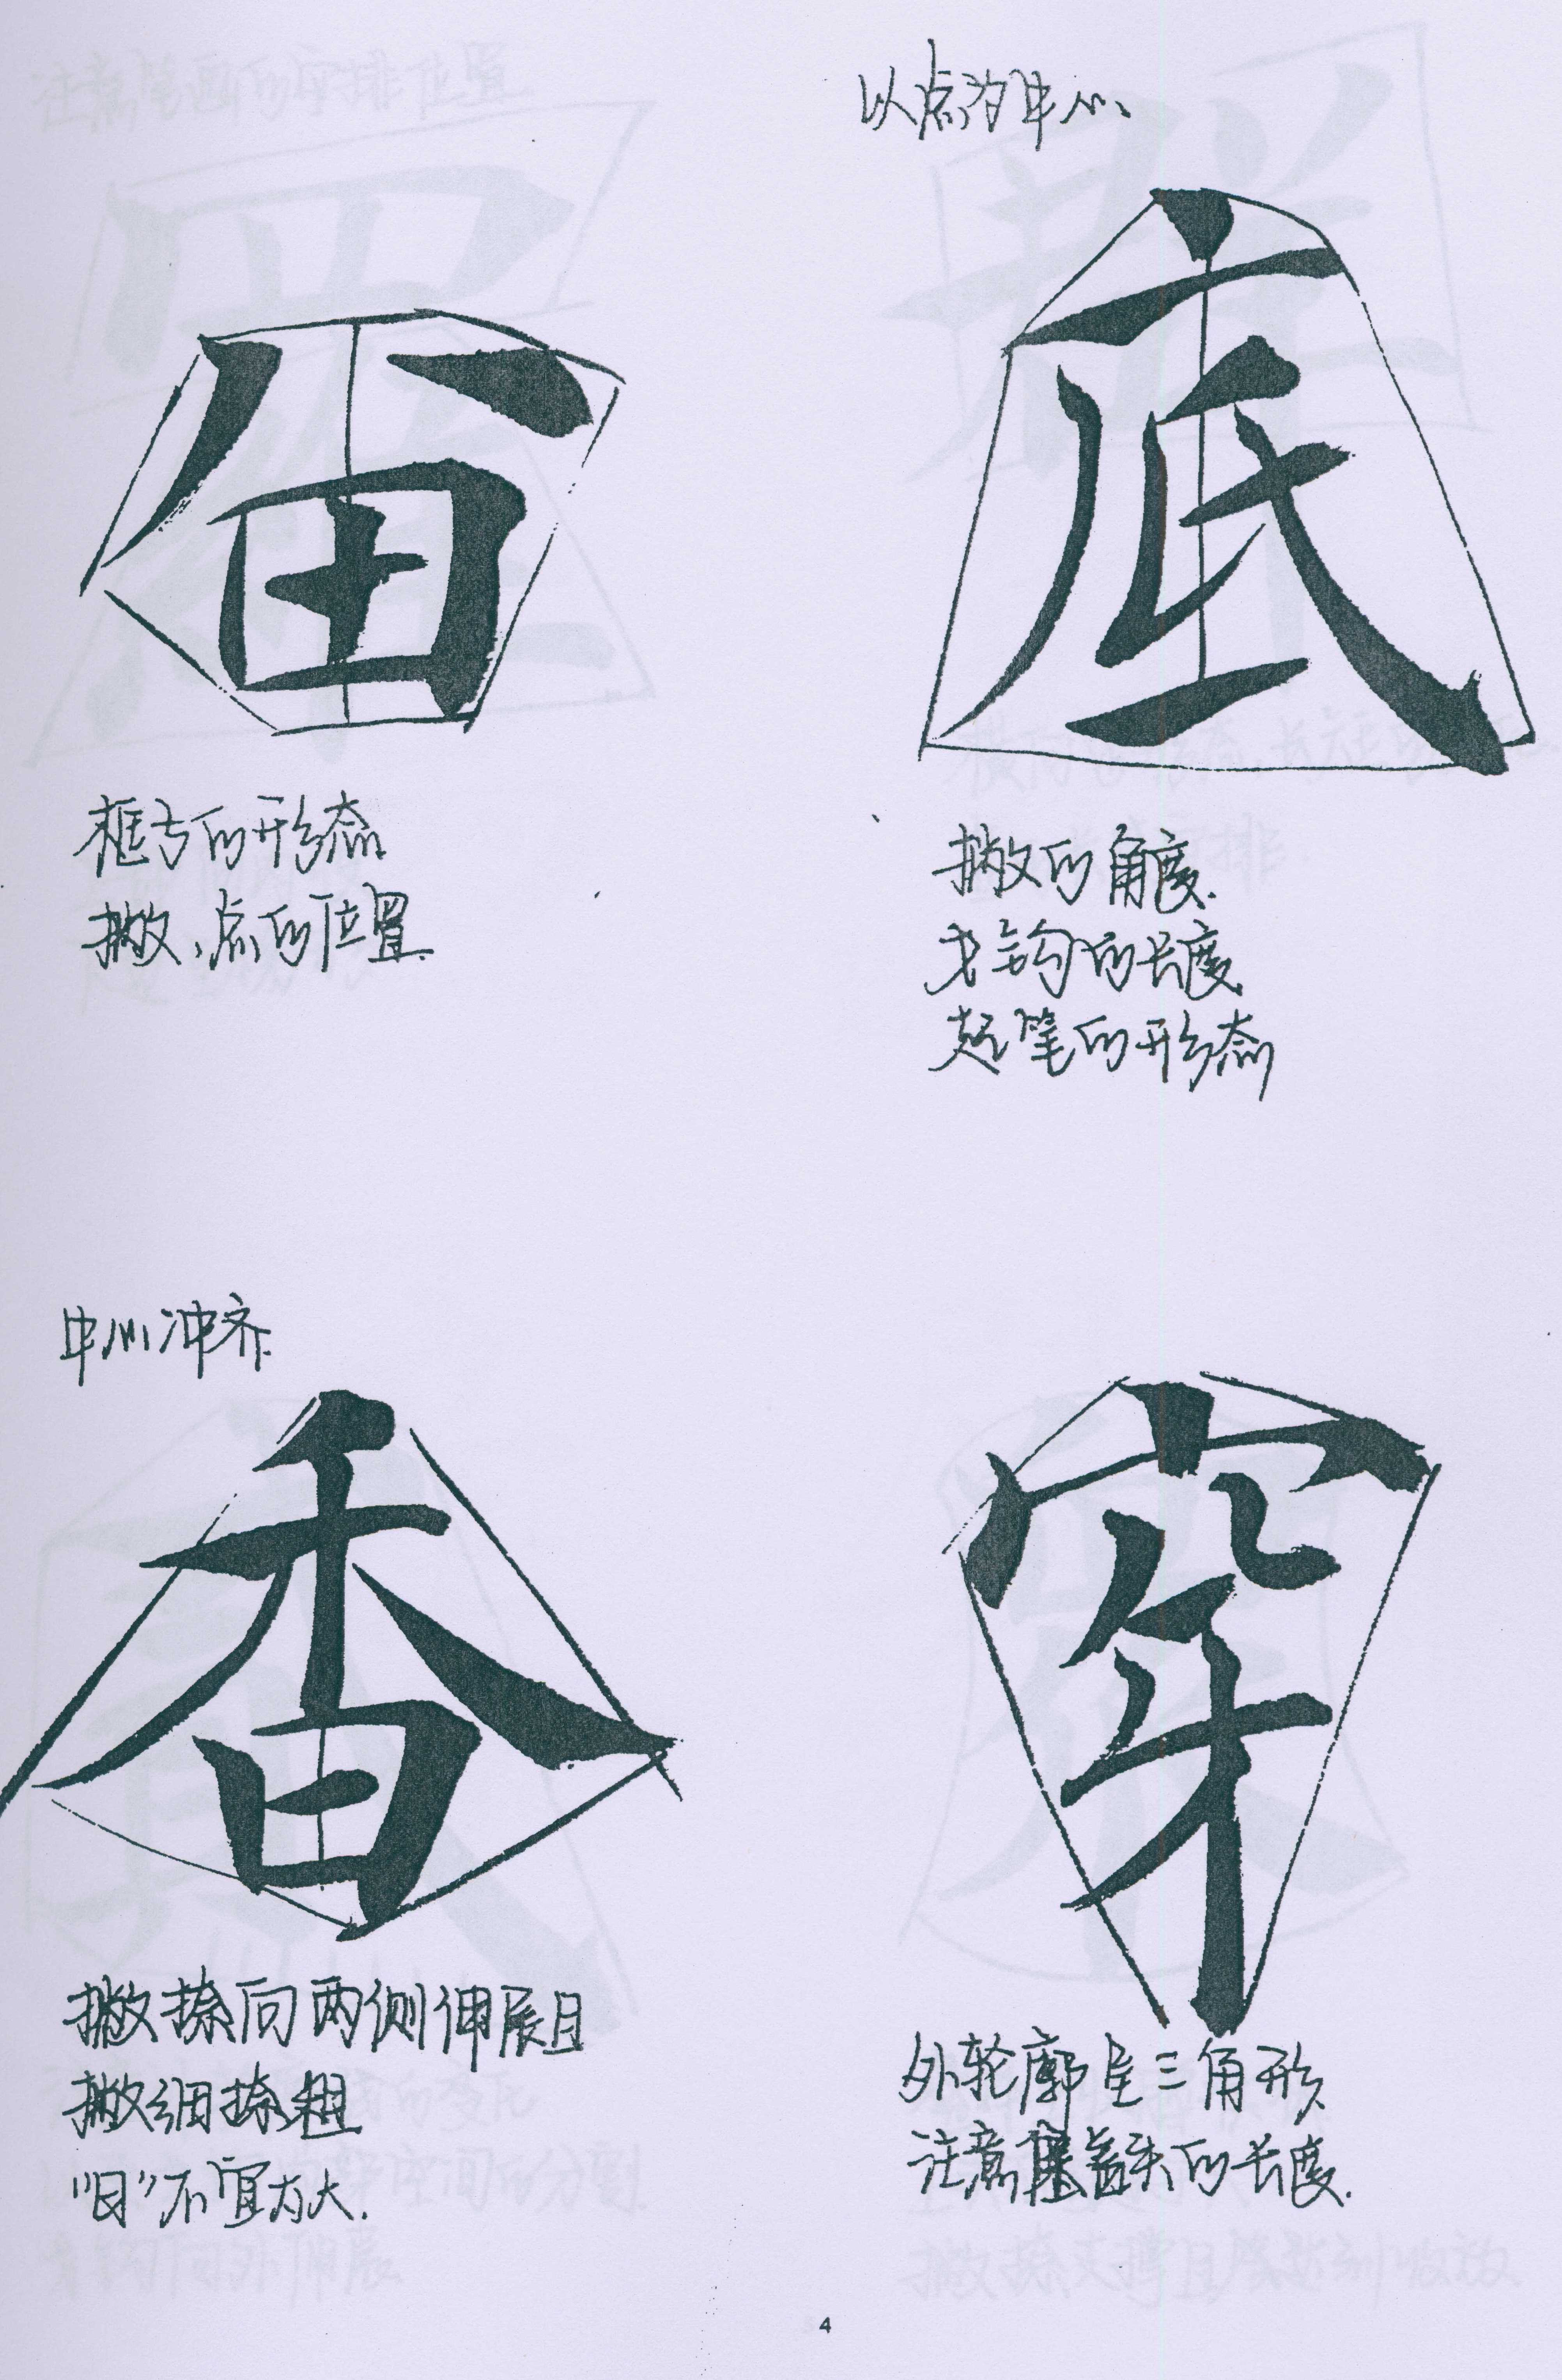 以点为中心
底
框的形态
撇、点的位置
撇的角度.
戈钩的长度
起笔的形态
中心冲齐.
香
穿
撇捺向两侧伸展且
撇细捺粗
"日"不宜太大.
外轮廓呈三角形
注意宝盖头的长度.
4